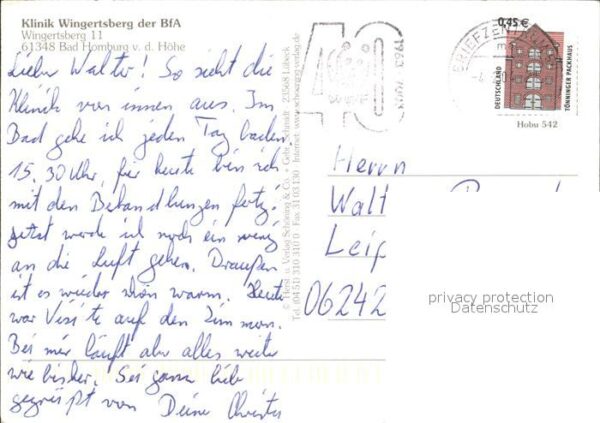 Klinik Wingertsberg der BfA
Wingertsberg 11
61348 Bad Homburg v. d. Höhe
Lieber Walter! So sieht die
Klinik von innen aus. Im
Bad gehe ich jeden Tag baden.
15.30 Uhr, für heute bin ich
mit den Behandlungen fertig!
Jetzt werde ich noch ein wenig
an die Luft gehen. Draußen
ist es wieder schön warm. Heute
war Visite auf den Zimmern.
Bei mir läuft aber alles weiter
wie bisher. Sei ganz lieb
gegrüßt von Deine Christa
© Herst. u. Verlag Schöning & Co. + Gebr. Schmidt · 23558 Lübeck
Tel. (04 51) 310 310 0 · Fax 31 03 130 · Internet: www.schoening-verlag.de
40
WWF
BRIEFZENTRUM
0,45 €
DEUTSCHLAND
TÖNNINGER PACKHAUS
Hobu 542
Herrn
Walt
Leip
06242
privacy protection
Datenschutz